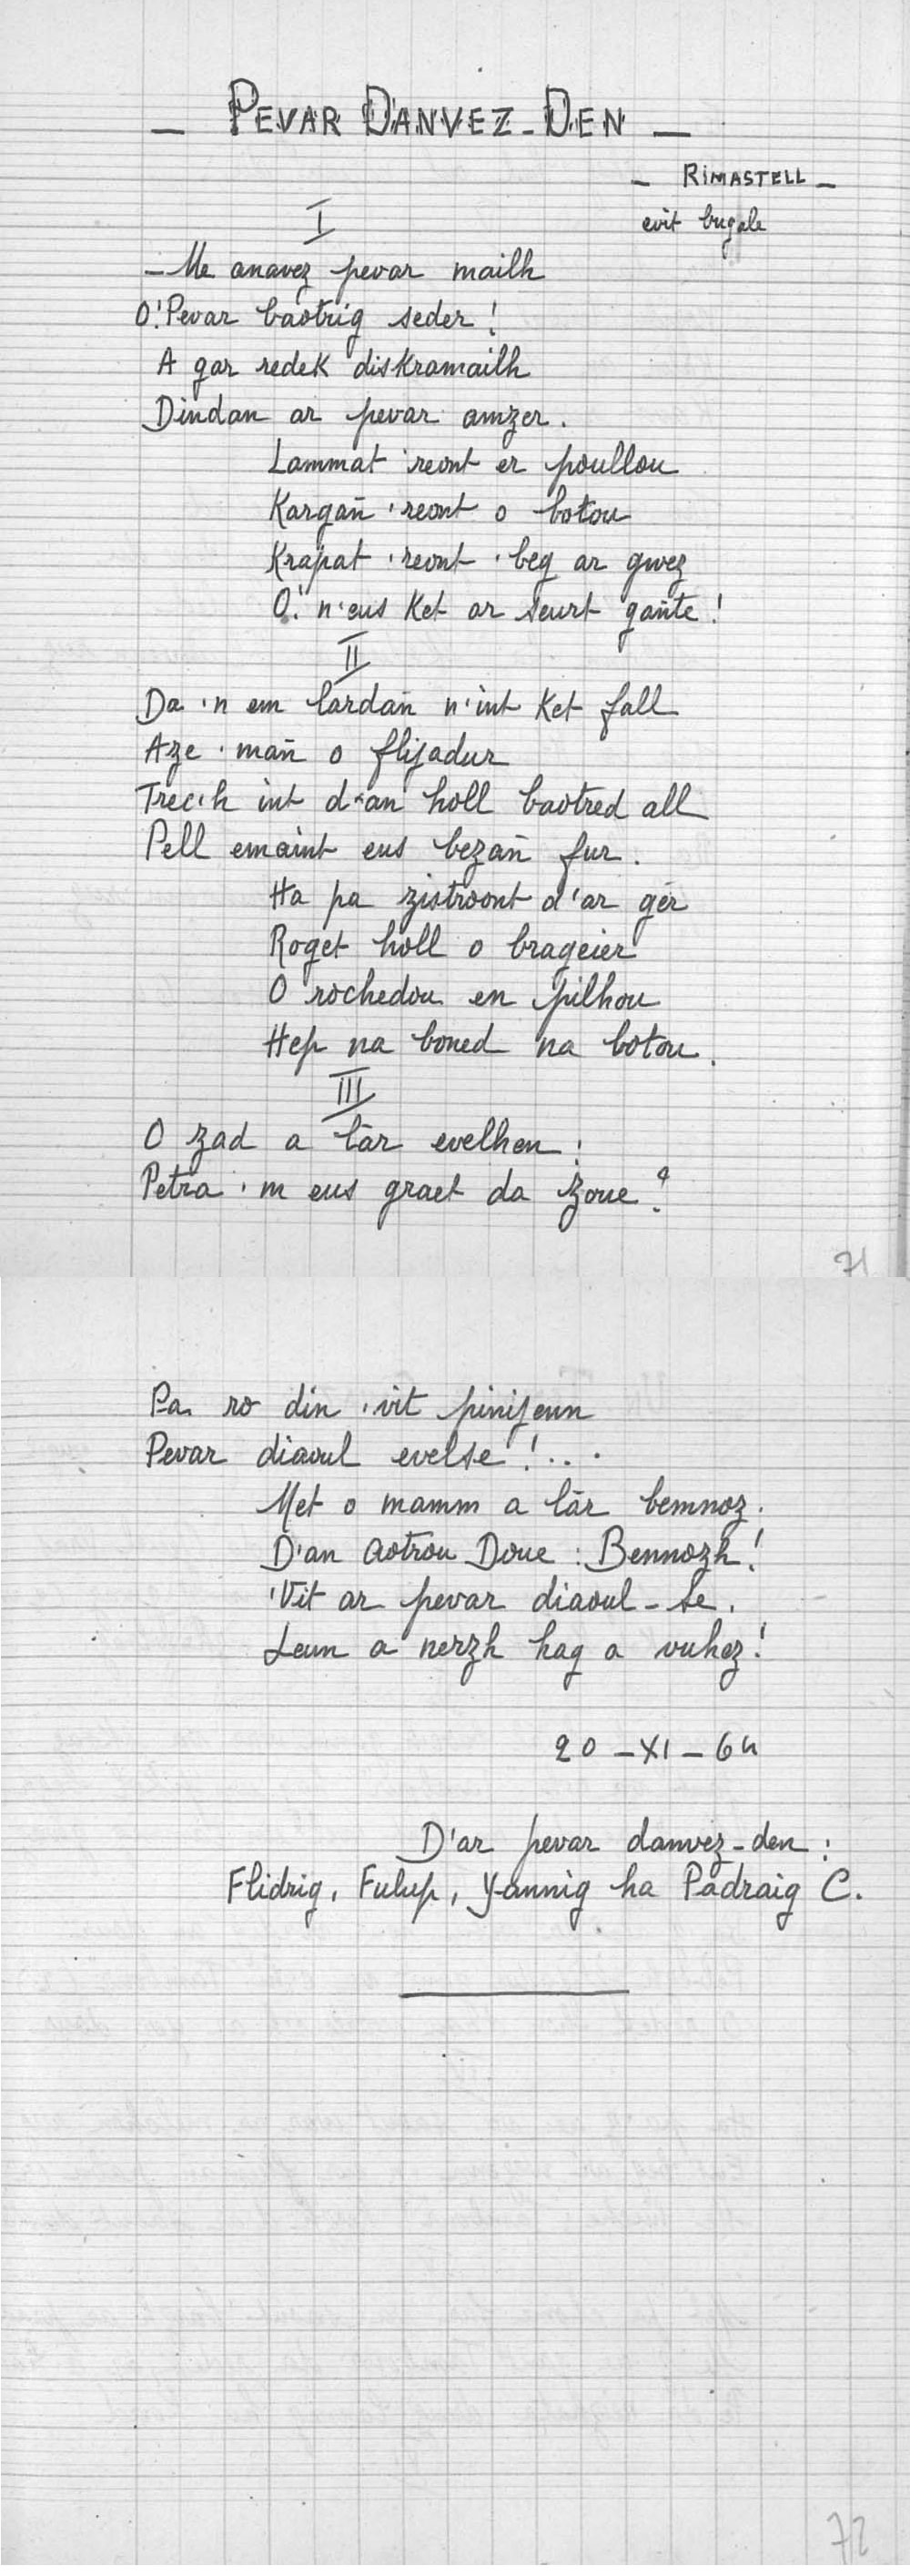 — PEVAR DANVEZ-DEN —
— RIMASTELL —
evit bugale
I
— Me anavez pevar mailh
O! Pevar baotrig seder !
A gar redek diskramailh
Dindan ar pevar amzer.
Lammat 'reont er poullou
Kargañ 'reont o botou
Krapat 'reont 'beg ar gwez
O! n'eus ket ar seurt gante !
II
Da 'n em lardañ n'int ket fall
Aze 'mañ o flijadur
Trec'h int d'an holl baotred all
Pell emaint eus bezañ fur.
Ha pa zistroont d'ar gêr
Roget holl o brageier
O rochedou en pilhou
Hep na boned na botou.
III
O zad a lâr evelhen :
Petra 'm eus graet da Zoue ?
71
Pa ro din 'vit pinijenn
Pevar diaoul evelse !...
Met o mamm a lâr bemnoz.
D'an Aotrou Doue : Bennozh !
'Vit ar pevar diaoul-se.
Leun a nerzh hag a vuhez !
20 – XI – 64
D'ar pevar danvez-den :
Flidrig, Fulup, Yannig ha Padraig C.
72